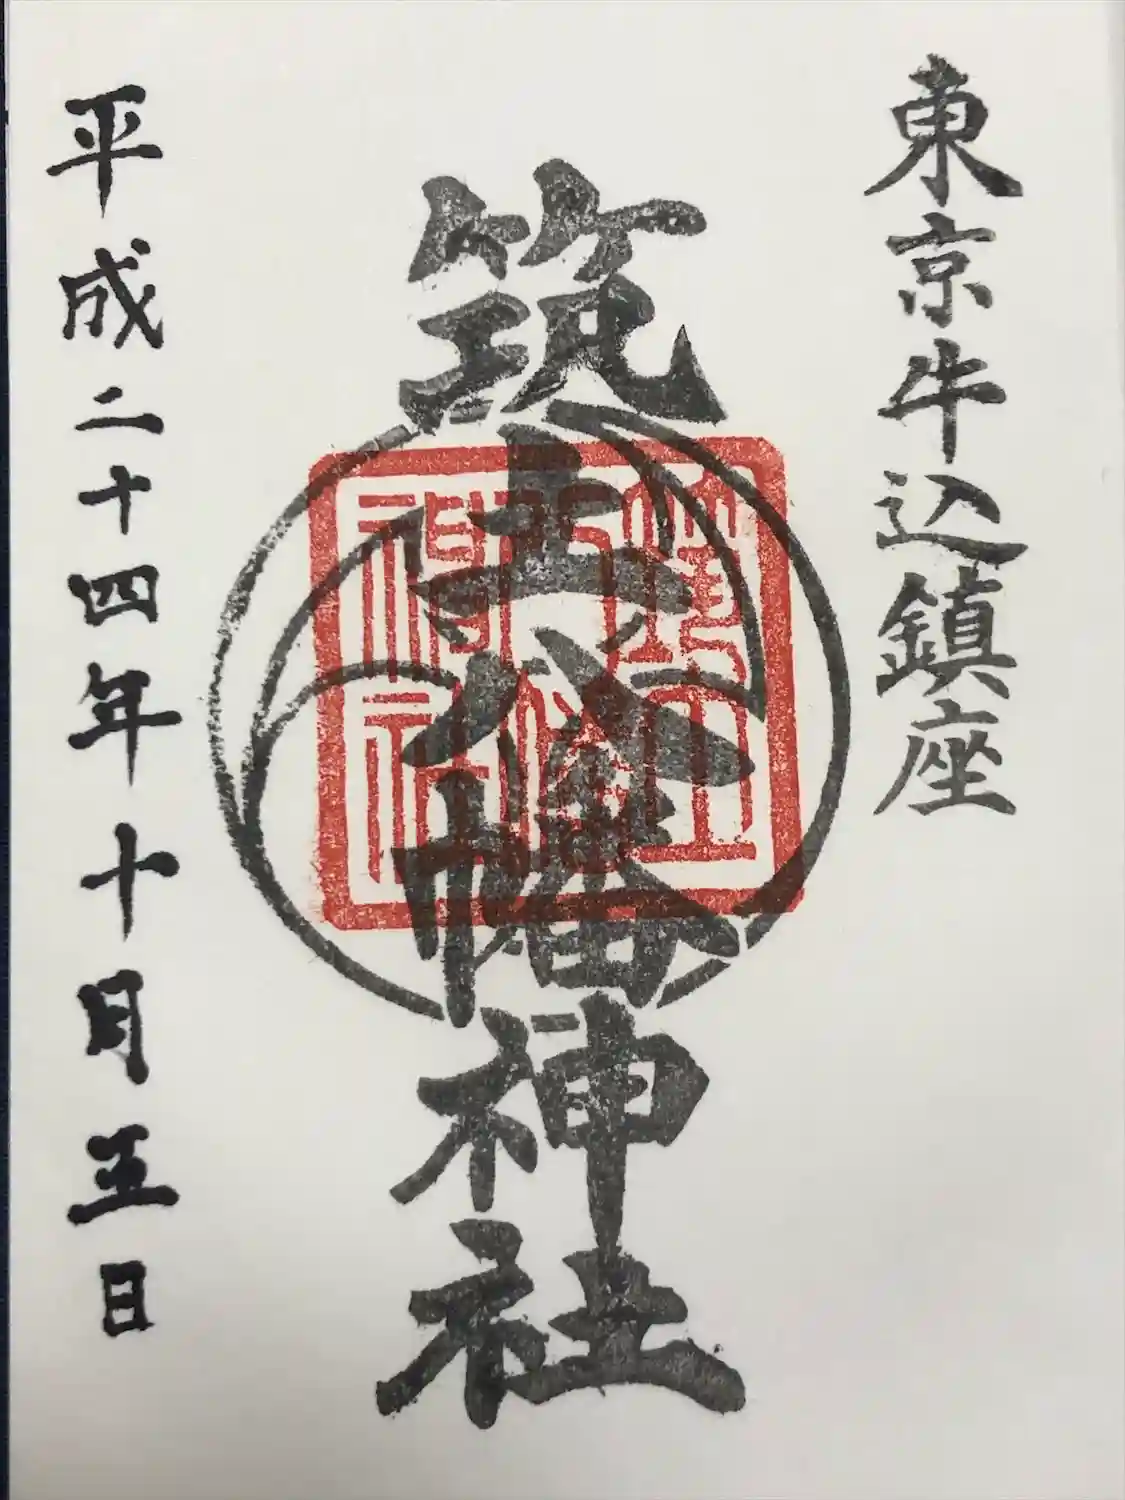 東京牛込鎮座
筑土八幡神社
筑土八幡神社
平成二十四年十月五日